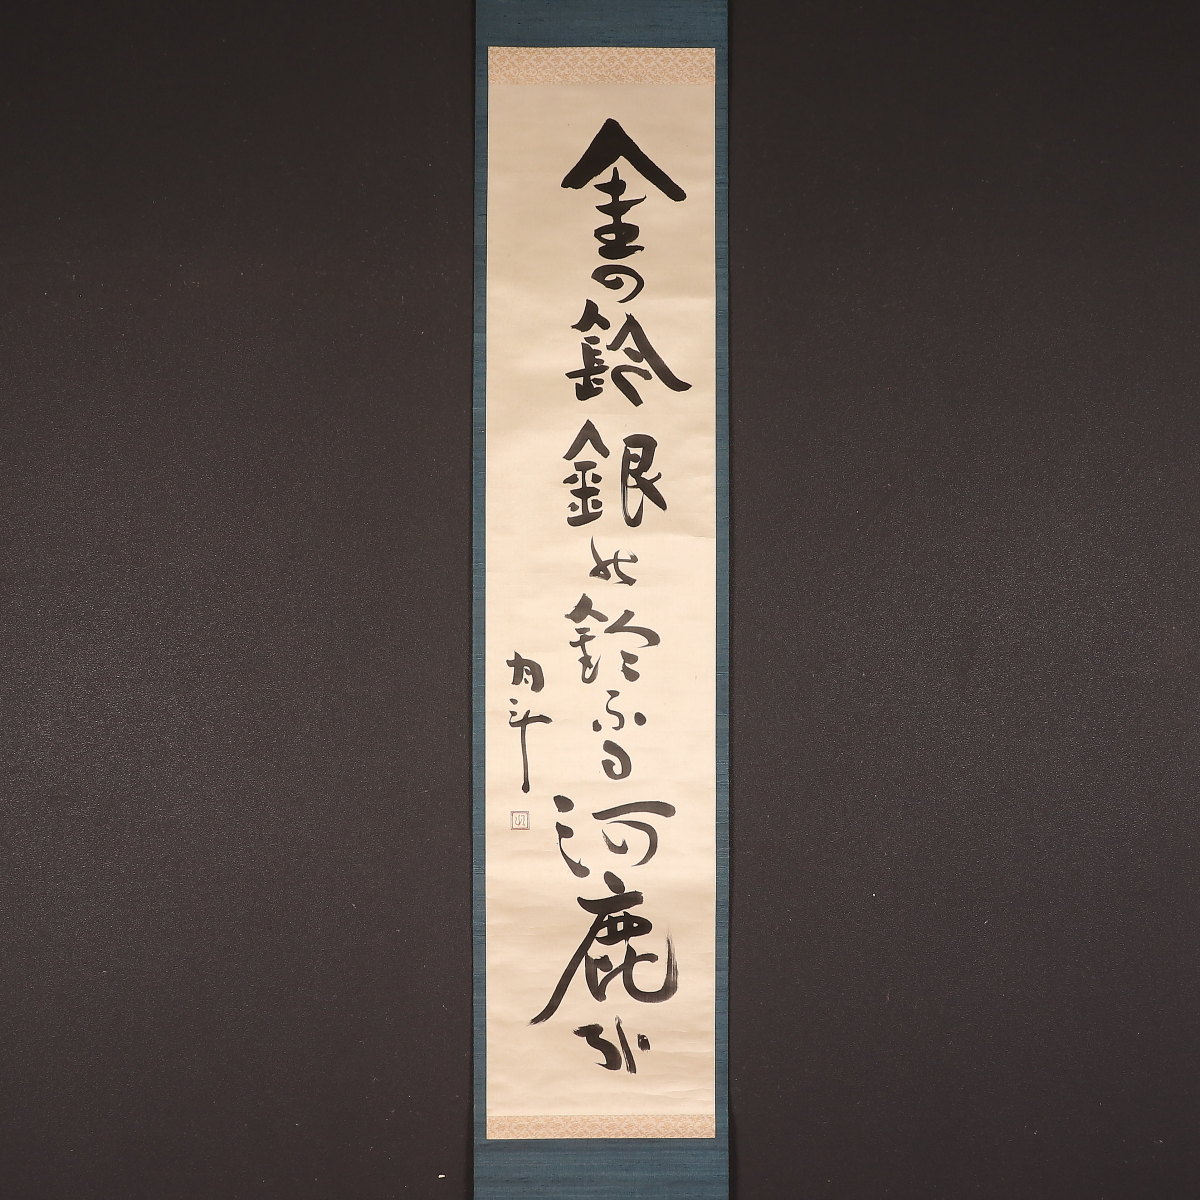 金の鈴銀の鈴ふる河鹿か
月斗